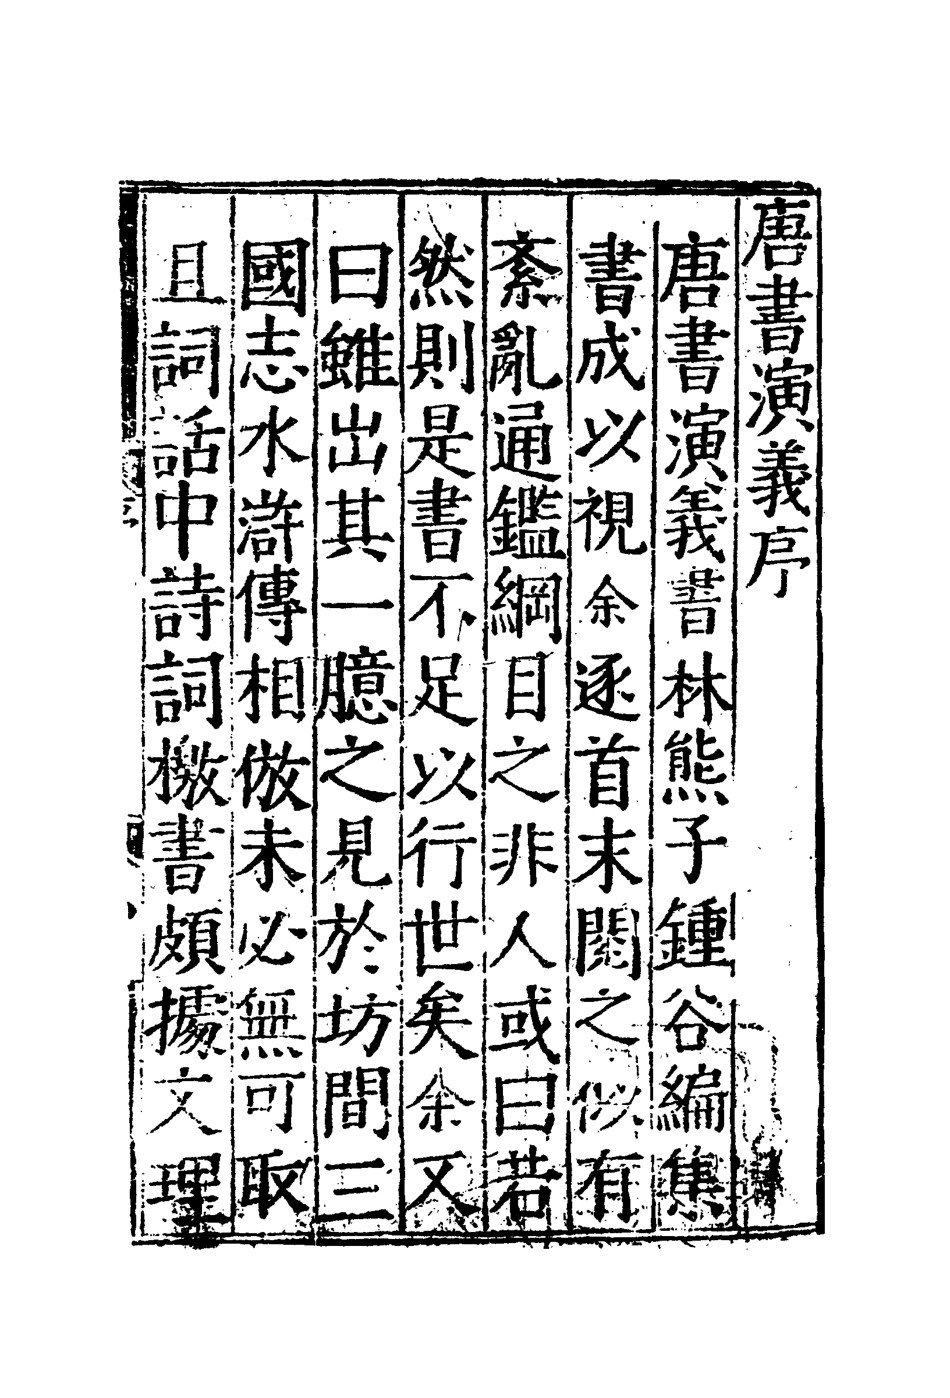 唐書演義序
唐書演義書林熊子鍾谷編集
書成以視余逐首末閱之似有
紊亂通鑑綱目之非人或曰若
然則是書不足以行世矣余又
曰雖出其一臆之見於坊間三
國志水滸傳相倣未必無可取
且詞話中詩詞檄書頗據文理